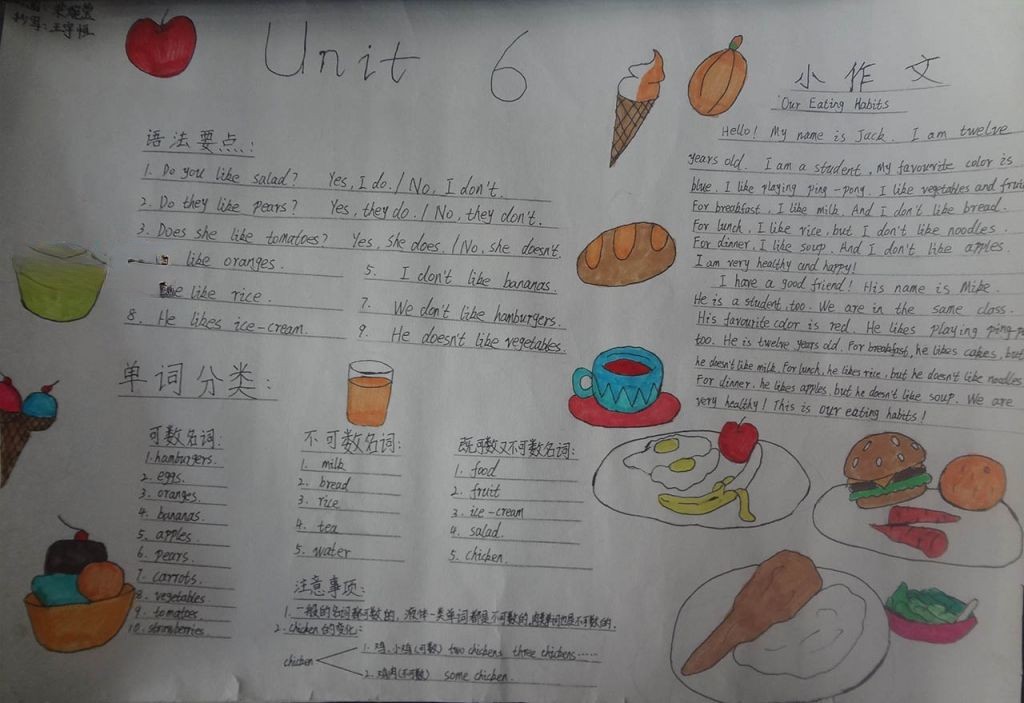 Unit 6
语法要点:
1. Do you like salad? Yes, I do. / No, I don't.
2. Do they like pears? Yes, they do. / No, they don't.
3. Does she like tomatoes? Yes, she does. / No, she doesn't.
like oranges.
5. I don't like bananas.
like rice.
7. We don't like hamburgers.
8. He likes ice-cream.
9. He doesn't like vegetables.
单词分类:
可数名词:
1. hamburgers.
2. eggs.
3. oranges.
4. bananas.
5. apples.
6. pears.
7. carrots.
8. vegetables
9. tomatoes
10. strawberries.
不可数名词:
1. milk
2. bread
3. rice
4. tea
5. water
既可数又不可数名词:
1. food
2. fruit
3. ice-cream
4. salad.
5. chicken.
注意事项:
1. 一般的名词都可数的, 液体一类单词都是不可数的, 肉类单词也是不可数的.
2. chicken的变化:
chicken
1. 鸡, 小鸡(可数) two chickens three chickens......
2. 鸡肉(不可数) some chicken.
小作文
Our Eating Habits
Hello! My name is Jack. I am twelve
years old. I am a student, My favourite color is
blue. I like playing ping-pony. I like vegetables and
For breakfast, I like milk. And I don't like bread.
For lunch, I like rice, but I don't like noodles.
For dinner, I like soup. And I don't like apples.
I am very healthy and happy!
I have a good friend! His name is Mike.
He is a student, too. We are in the same class.
His favourite color is red. He likes playing
too. He is twelve years old. For breakfast, he likes cakes, but
he doesn't like milk. For lunch, he likes rice, but he doesn't like noodles
For dinner, he likes apples, but he doesn't like soup. We are
very healthy! This is our eating habits!